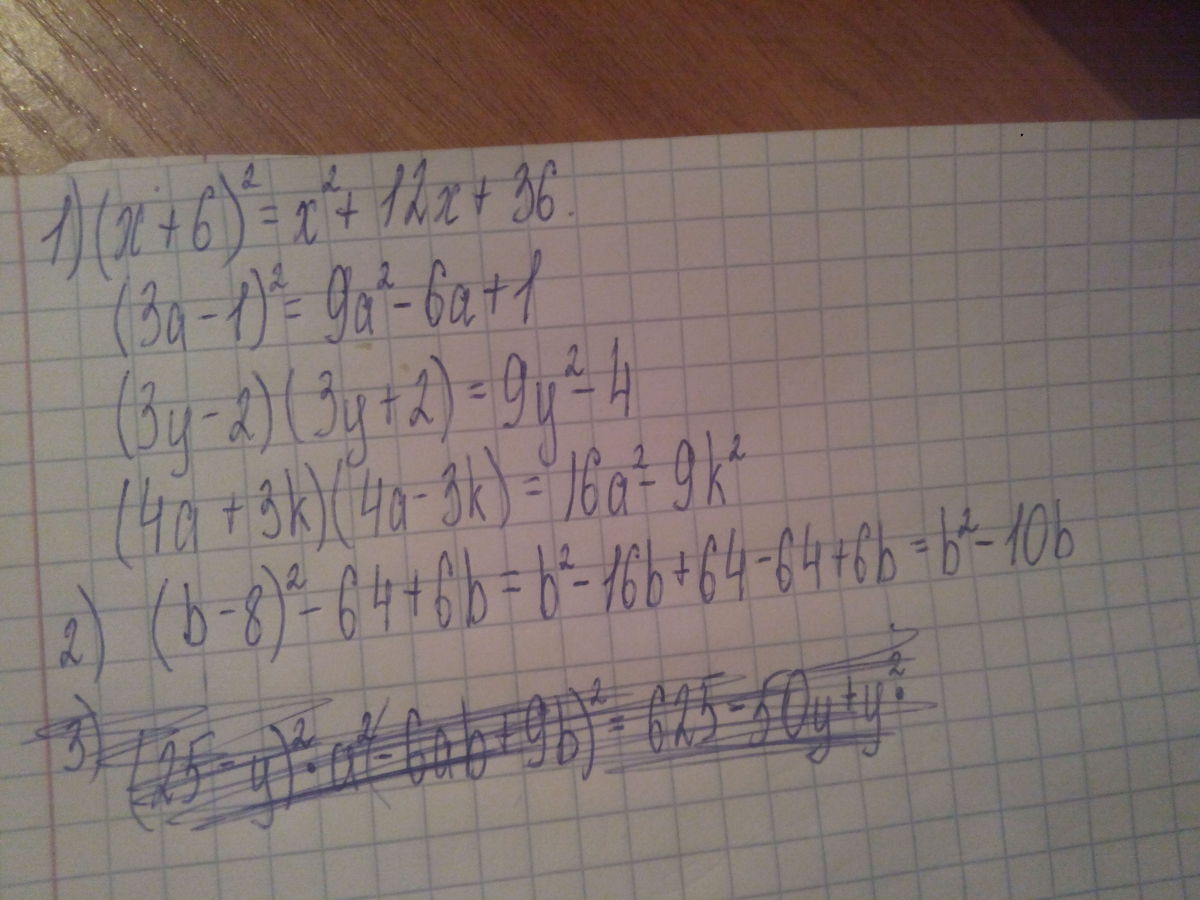 1) (x + 6)² = x² + 12x + 36.
(3a - 1)² = 9a² - 6a + 1
(3y - 2)(3y + 2) = 9y² - 4
(4a + 3k)(4a - 3k) = 16a² - 9k²
2) (b - 8)² - 64 + 6b = b² - 16b + 64 - 64 + 6b = b² - 10b
3) (25 - y)² · a² - 6ab + 9b)² = 625 - 50y + y².